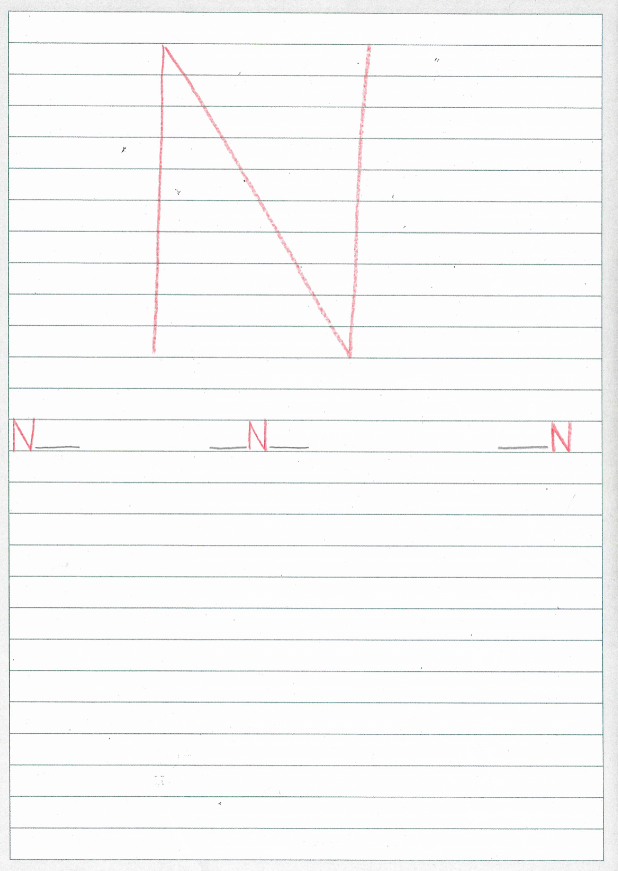 N
N__ __N__ __N